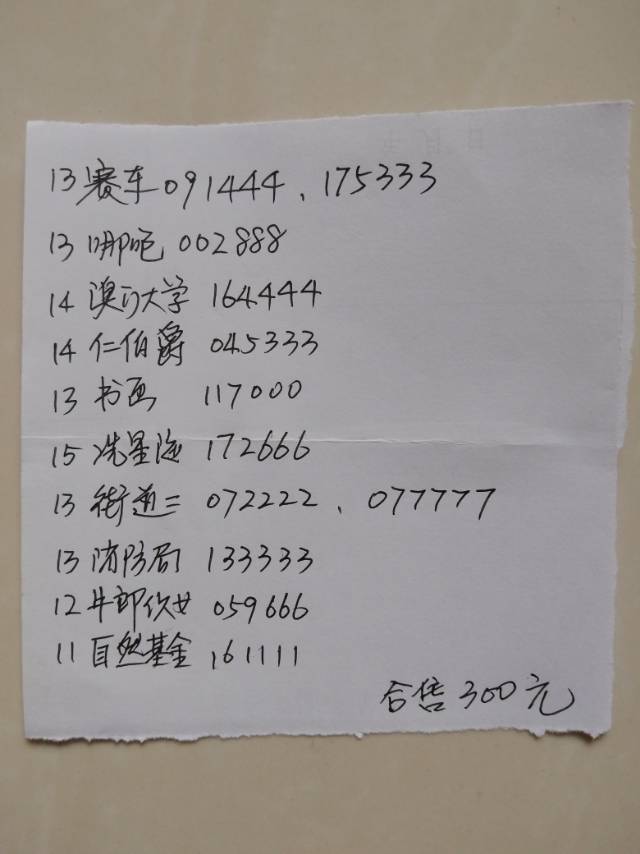 13 赛车 091444、175333
13 哪吒 002888
14 澳门大学 164444
14 仁伯爵 045333
13 书画 117000
15 冼星海 172666
13 街道三 072222、077777
13 消防局 133333
12 牛郎织女 059666
11 自然基金 161111
合售 300元